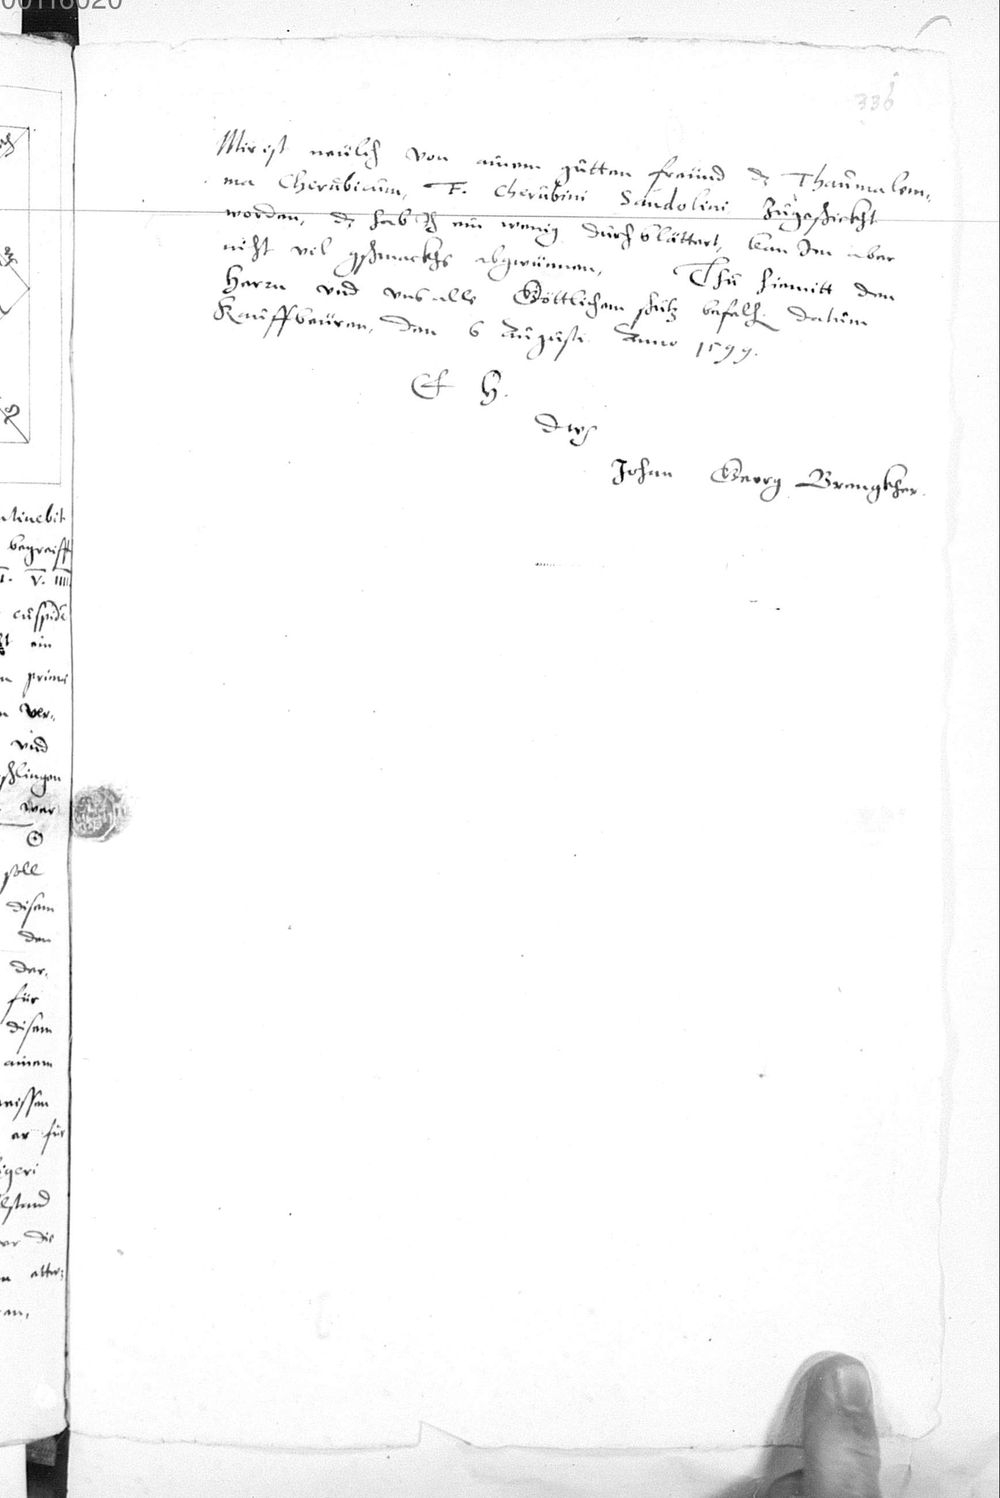 00116020
336
Mir ist neülich von ainem gütten freünd dz Thaumalem,
ma Cherübicum, F. Cherübini Sandolini zügeschickht
worden, dz hab Ich ein wenig dürchblättert, kan Im aber
nicht vil gschmackhs abgwünnen, Thü hiemitt den
Herrn vnd vns alle Göttlichem schütz befelh. datum
Kauffbeüren, den 6 Augusti Anno 1599.
E H.
Johan Georg Brengkher.
begreifft
V. IIII
cuspide
ein
primi
ver,
vnd
war
☉
soll
disem
den
der,
für
disem
ainem
er für
die